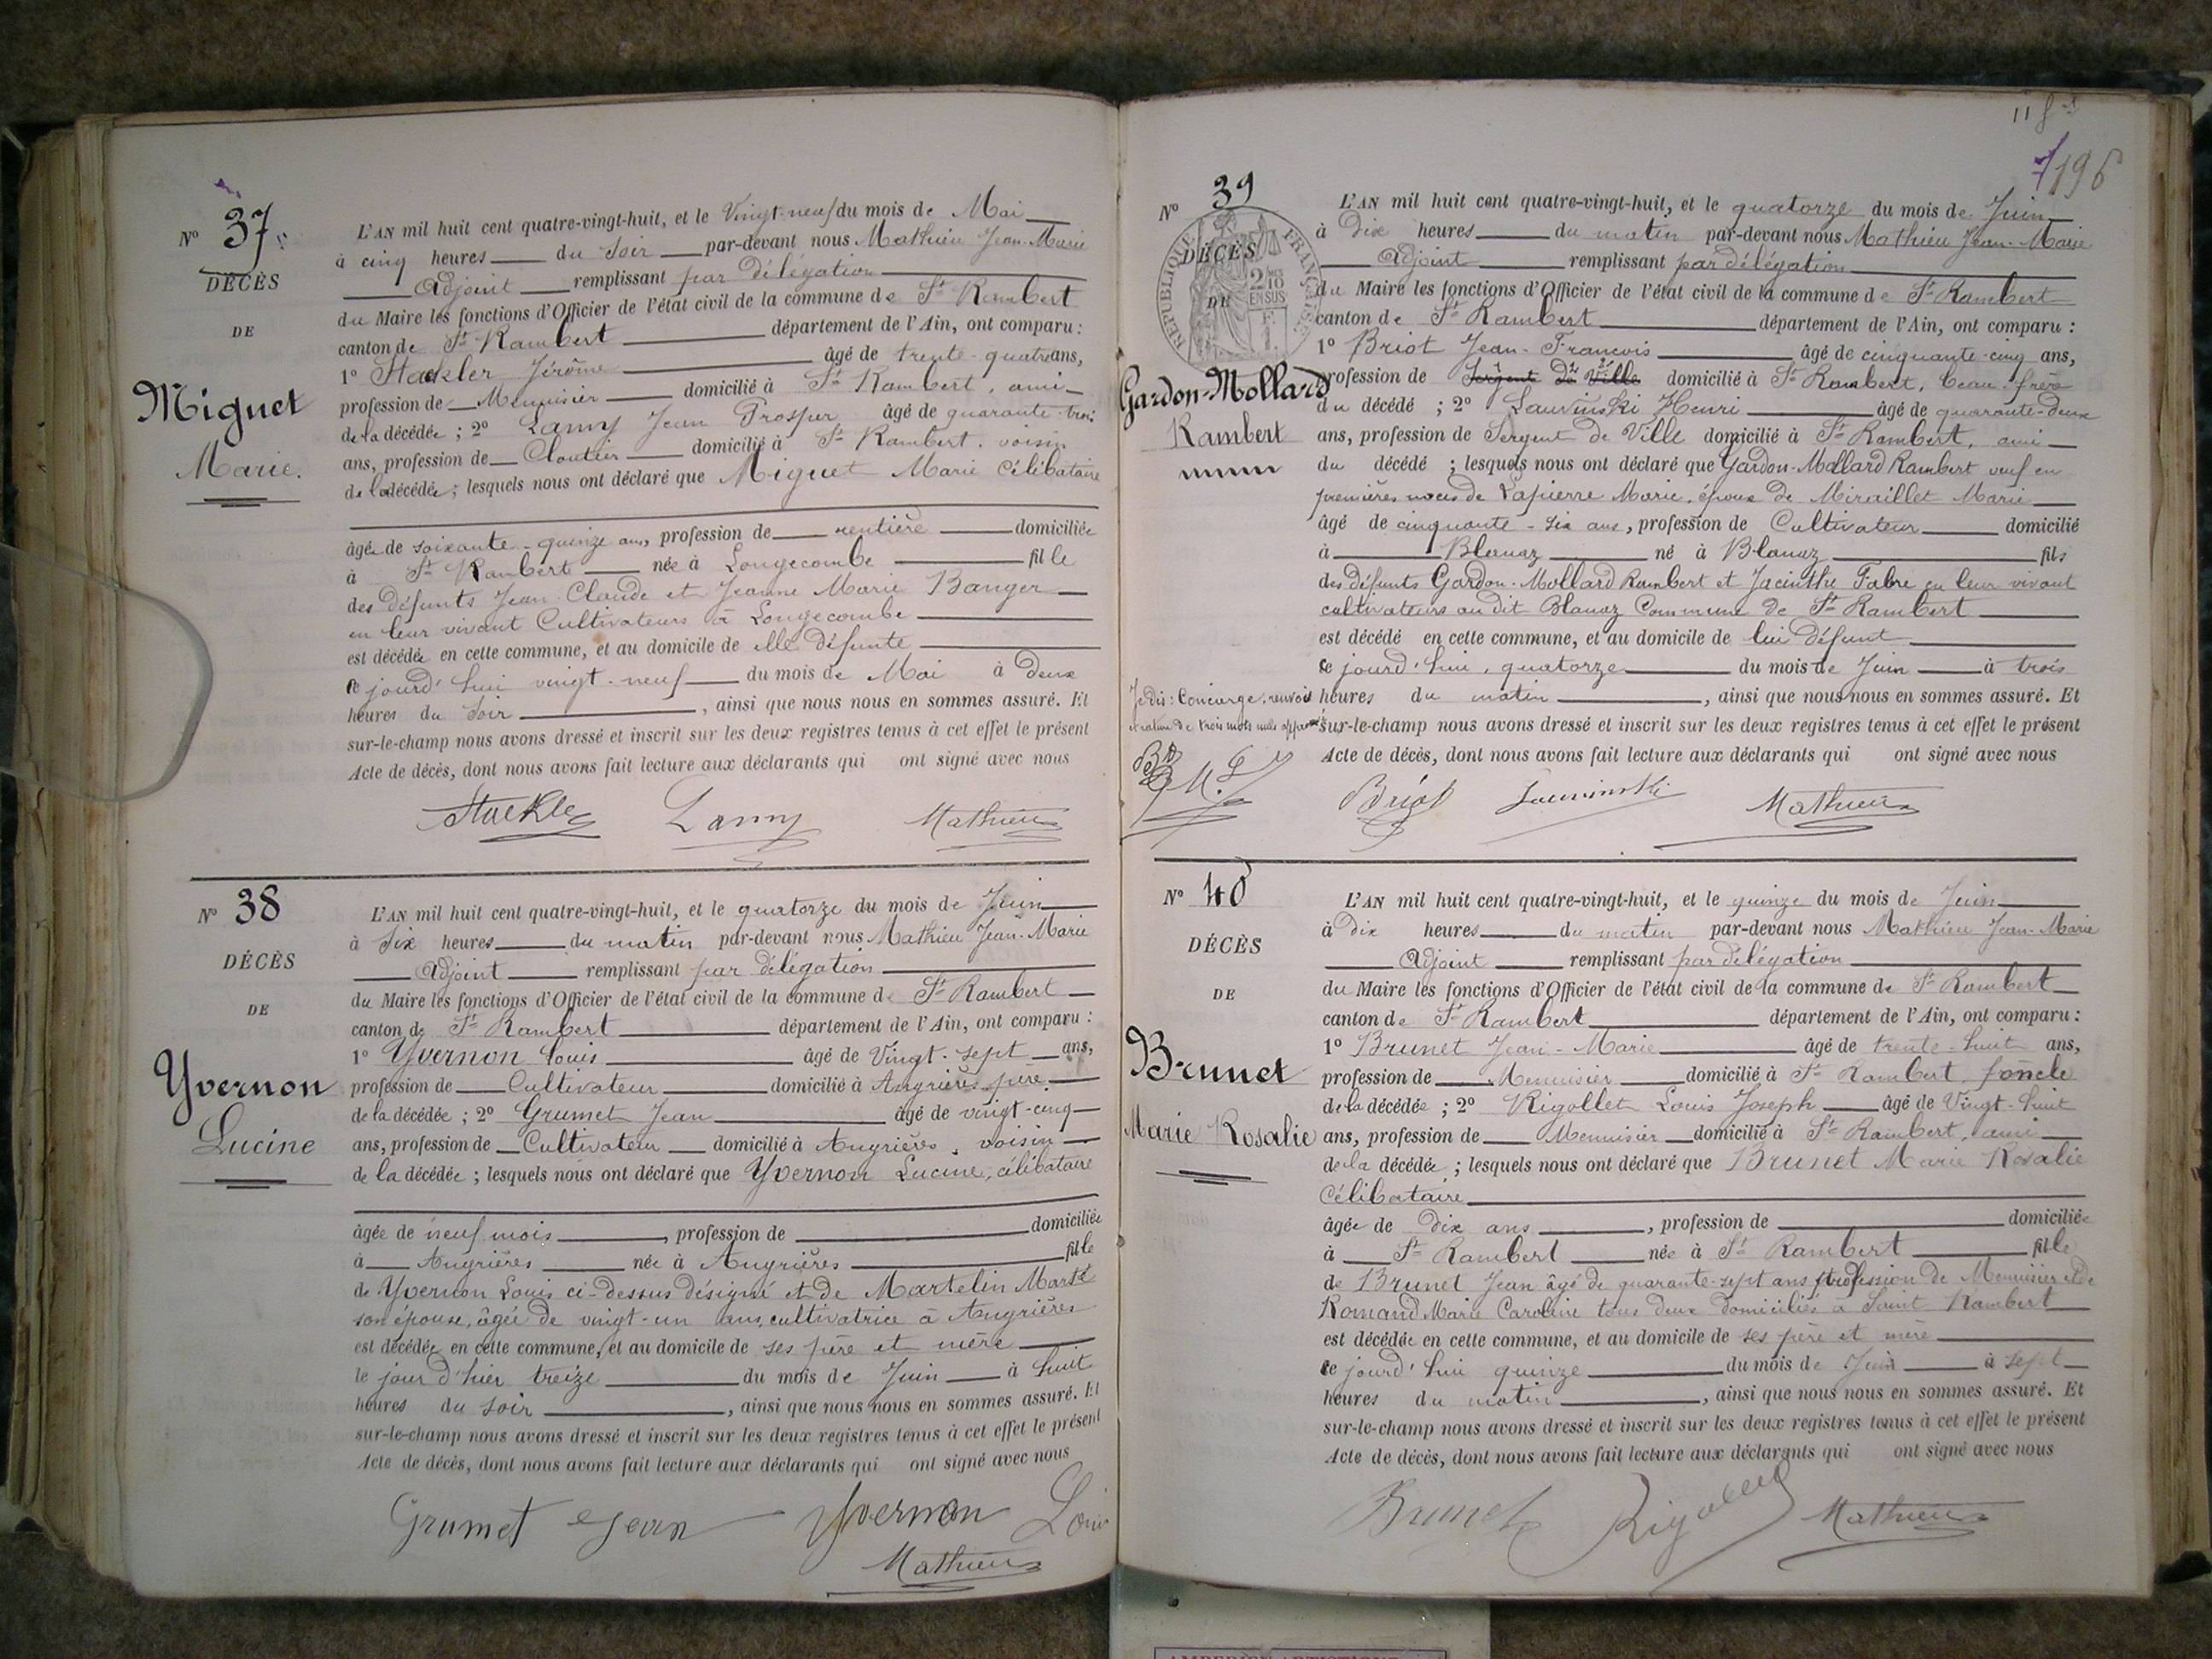 N° 37
DÉCÈS
DE
Miguet
Marie.
L'AN mil huit cent quatre-vingt-huit, et le Vingt-neuf du mois de Mai
à cinq heures du Soir par-devant nous Mathieu Jean-Marie
Adjoint remplissant par délégation
du Maire les fonctions d'Officier de l'état civil de la commune de St Rambert
canton de St Rambert département de l'Ain, ont comparu :
1° Stackler Jérôme âgé de trente-quatre ans,
profession de Menuisier domicilié à St Rambert, ami
de la décédée ; 2° Lamy Jean Prosper âgé de quarante-trois
ans, profession de Cloutier domicilié à St Rambert. voisin
de la décédée ; lesquels nous ont déclaré que Miguet Marie Célibataire
âgée de soixante-quinze ans, profession de rentière domiciliée
à St Rambert née à Longecombe fille
des défunts Jean-Claude et Jeanne Marie Banger
en leur vivant Cultivateurs à Longecombe
est décédée en cette commune, et au domicile de elle défunte
ce jourd'hui vingt-neuf du mois de Mai à deux
heures du Soir , ainsi que nous nous en sommes assuré. Et
sur-le-champ nous avons dressé et inscrit sur les deux registres tenus à cet effet le présent
Acte de décès, dont nous avons fait lecture aux déclarants qui ont signé avec nous
Lamy Mathieu
N° 38
DÉCÈS
DE
Yvernon
Lucine
L'AN mil huit cent quatre-vingt-huit, et le quatorze du mois de Juin
à Six heures du matin par-devant nous Mathieu Jean-Marie
Adjoint remplissant par délégation
du Maire les fonctions d'Officier de l'état civil de la commune de St Rambert
canton de St Rambert département de l'Ain, ont comparu :
1° Yvernon Louis âgé de Vingt-sept ans,
profession de Cultivateur domicilié à Angrières père
de la décédée ; 2° Grumet Jean âgé de vingt-cinq
ans, profession de Cultivateur domicilié à Angrières, voisin
de la décédée ; lesquels nous ont déclaré que Yvernon Lucine, célibataire
âgée de neuf mois , profession de domiciliée
à Angrières née à Angrières fille
de Yvernon Louis ci-dessus désigné et de Martelin Marie
son épouse, âgée de vingt-un ans, cultivatrice à Angrières
est décédée en cette commune, et au domicile de ses père et mère
le jour d'hier treize du mois de Juin à huit
heures du soir , ainsi que nous nous en sommes assuré. Et
sur-le-champ nous avons dressé et inscrit sur les deux registres tenus à cet effet le présent
Acte de décès, dont nous avons fait lecture aux déclarants qui ont signé avec nous
Grumet Jean Yvernon Louis
Mathieu
196
N° 39
DÉCÈS
DE
RÉPUBLIQUE FRANÇAISE
2/10 EN SUS
Gardon-Mollard
Rambert
L'AN mil huit cent quatre-vingt-huit, et le quatorze du mois de Juin
à Dix heures du matin par-devant nous Mathieu Jean-Marie
Adjoint remplissant par délégation
du Maire les fonctions d'Officier de l'état civil de la commune de St Rambert
canton de St Rambert département de l'Ain, ont comparu :
1° Briot Jean-François âgé de cinquante-cinq ans,
profession de Sergent de Ville domicilié à St Rambert, beau-frère
du décédé ; 2° Lauvinski Henri âgé de quarante-deux
ans, profession de Sergent de Ville domicilié à St Rambert, ami
du décédé ; lesquels nous ont déclaré que Gardon-Mollard Rambert veuf en
premières noces de Lapierre Marie, époux de Miraillet Marie
âgé de cinquante-six ans, profession de Cultivateur domicilié
à Blanaz né à Blanaz fils
des défunts Gardon-Mollard Rambert et Jacinthe Fabre en leur vivant
cultivateurs au dit Blanaz Commune de St Rambert
est décédé en cette commune, et au domicile de lui défunt
ce jourd'hui, quatorze du mois de Juin à trois
heures du matin , ainsi que nous nous en sommes assuré. Et
sur-le-champ nous avons dressé et inscrit sur les deux registres tenus à cet effet le présent
Acte de décès, dont nous avons fait lecture aux déclarants qui ont signé avec nous
Je dis : Concierge, renvoi
et rature de trois mots nuls approuvés
Briot Lauvinski Mathieu
N° 40
DÉCÈS
DE
Brunet
Marie Rosalie
L'AN mil huit cent quatre-vingt-huit, et le quinze du mois de Juin
à Dix heures du matin par-devant nous Mathieu Jean-Marie
Adjoint remplissant par délégation
du Maire les fonctions d'Officier de l'état civil de la commune de St Rambert
canton de St Rambert département de l'Ain, ont comparu :
1° Brunet Jean-Marie âgé de trente-huit ans,
profession de Menuisier domicilié à St Rambert, oncle
de la décédée ; 2° Rigollet Louis Joseph âgé de Vingt-huit
ans, profession de Menuisier domicilié à St Rambert, ami
de la décédée ; lesquels nous ont déclaré que Brunet Marie Rosalie
Célibataire
âgée de Dix ans , profession de domiciliée
à St Rambert née à St Rambert fille
de Brunet Jean âgé de quarante-sept ans profession de Menuisier et de
Romand Marie Caroline tous deux domiciliés à Saint Rambert
est décédée en cette commune, et au domicile de ses père et mère
ce jourd'hui quinze du mois de Juin à sept
heures du matin , ainsi que nous nous en sommes assuré. Et
sur-le-champ nous avons dressé et inscrit sur les deux registres tenus à cet effet le présent
Acte de décès, dont nous avons fait lecture aux déclarants qui ont signé avec nous
Brunet Rigollet Mathieu